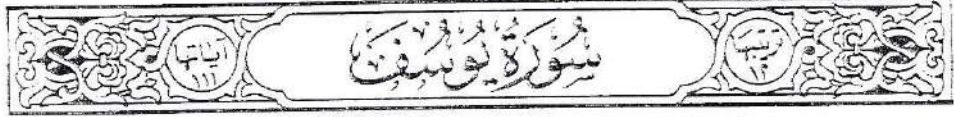 ترتيبها
١٢
سُورَةُ يُوسُفَ
آياتها
١١١